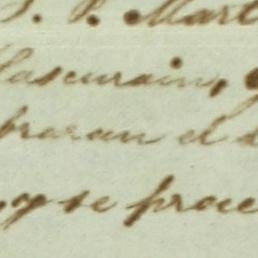 S. P. Mart
Lascurain,
braran el
, y se proce